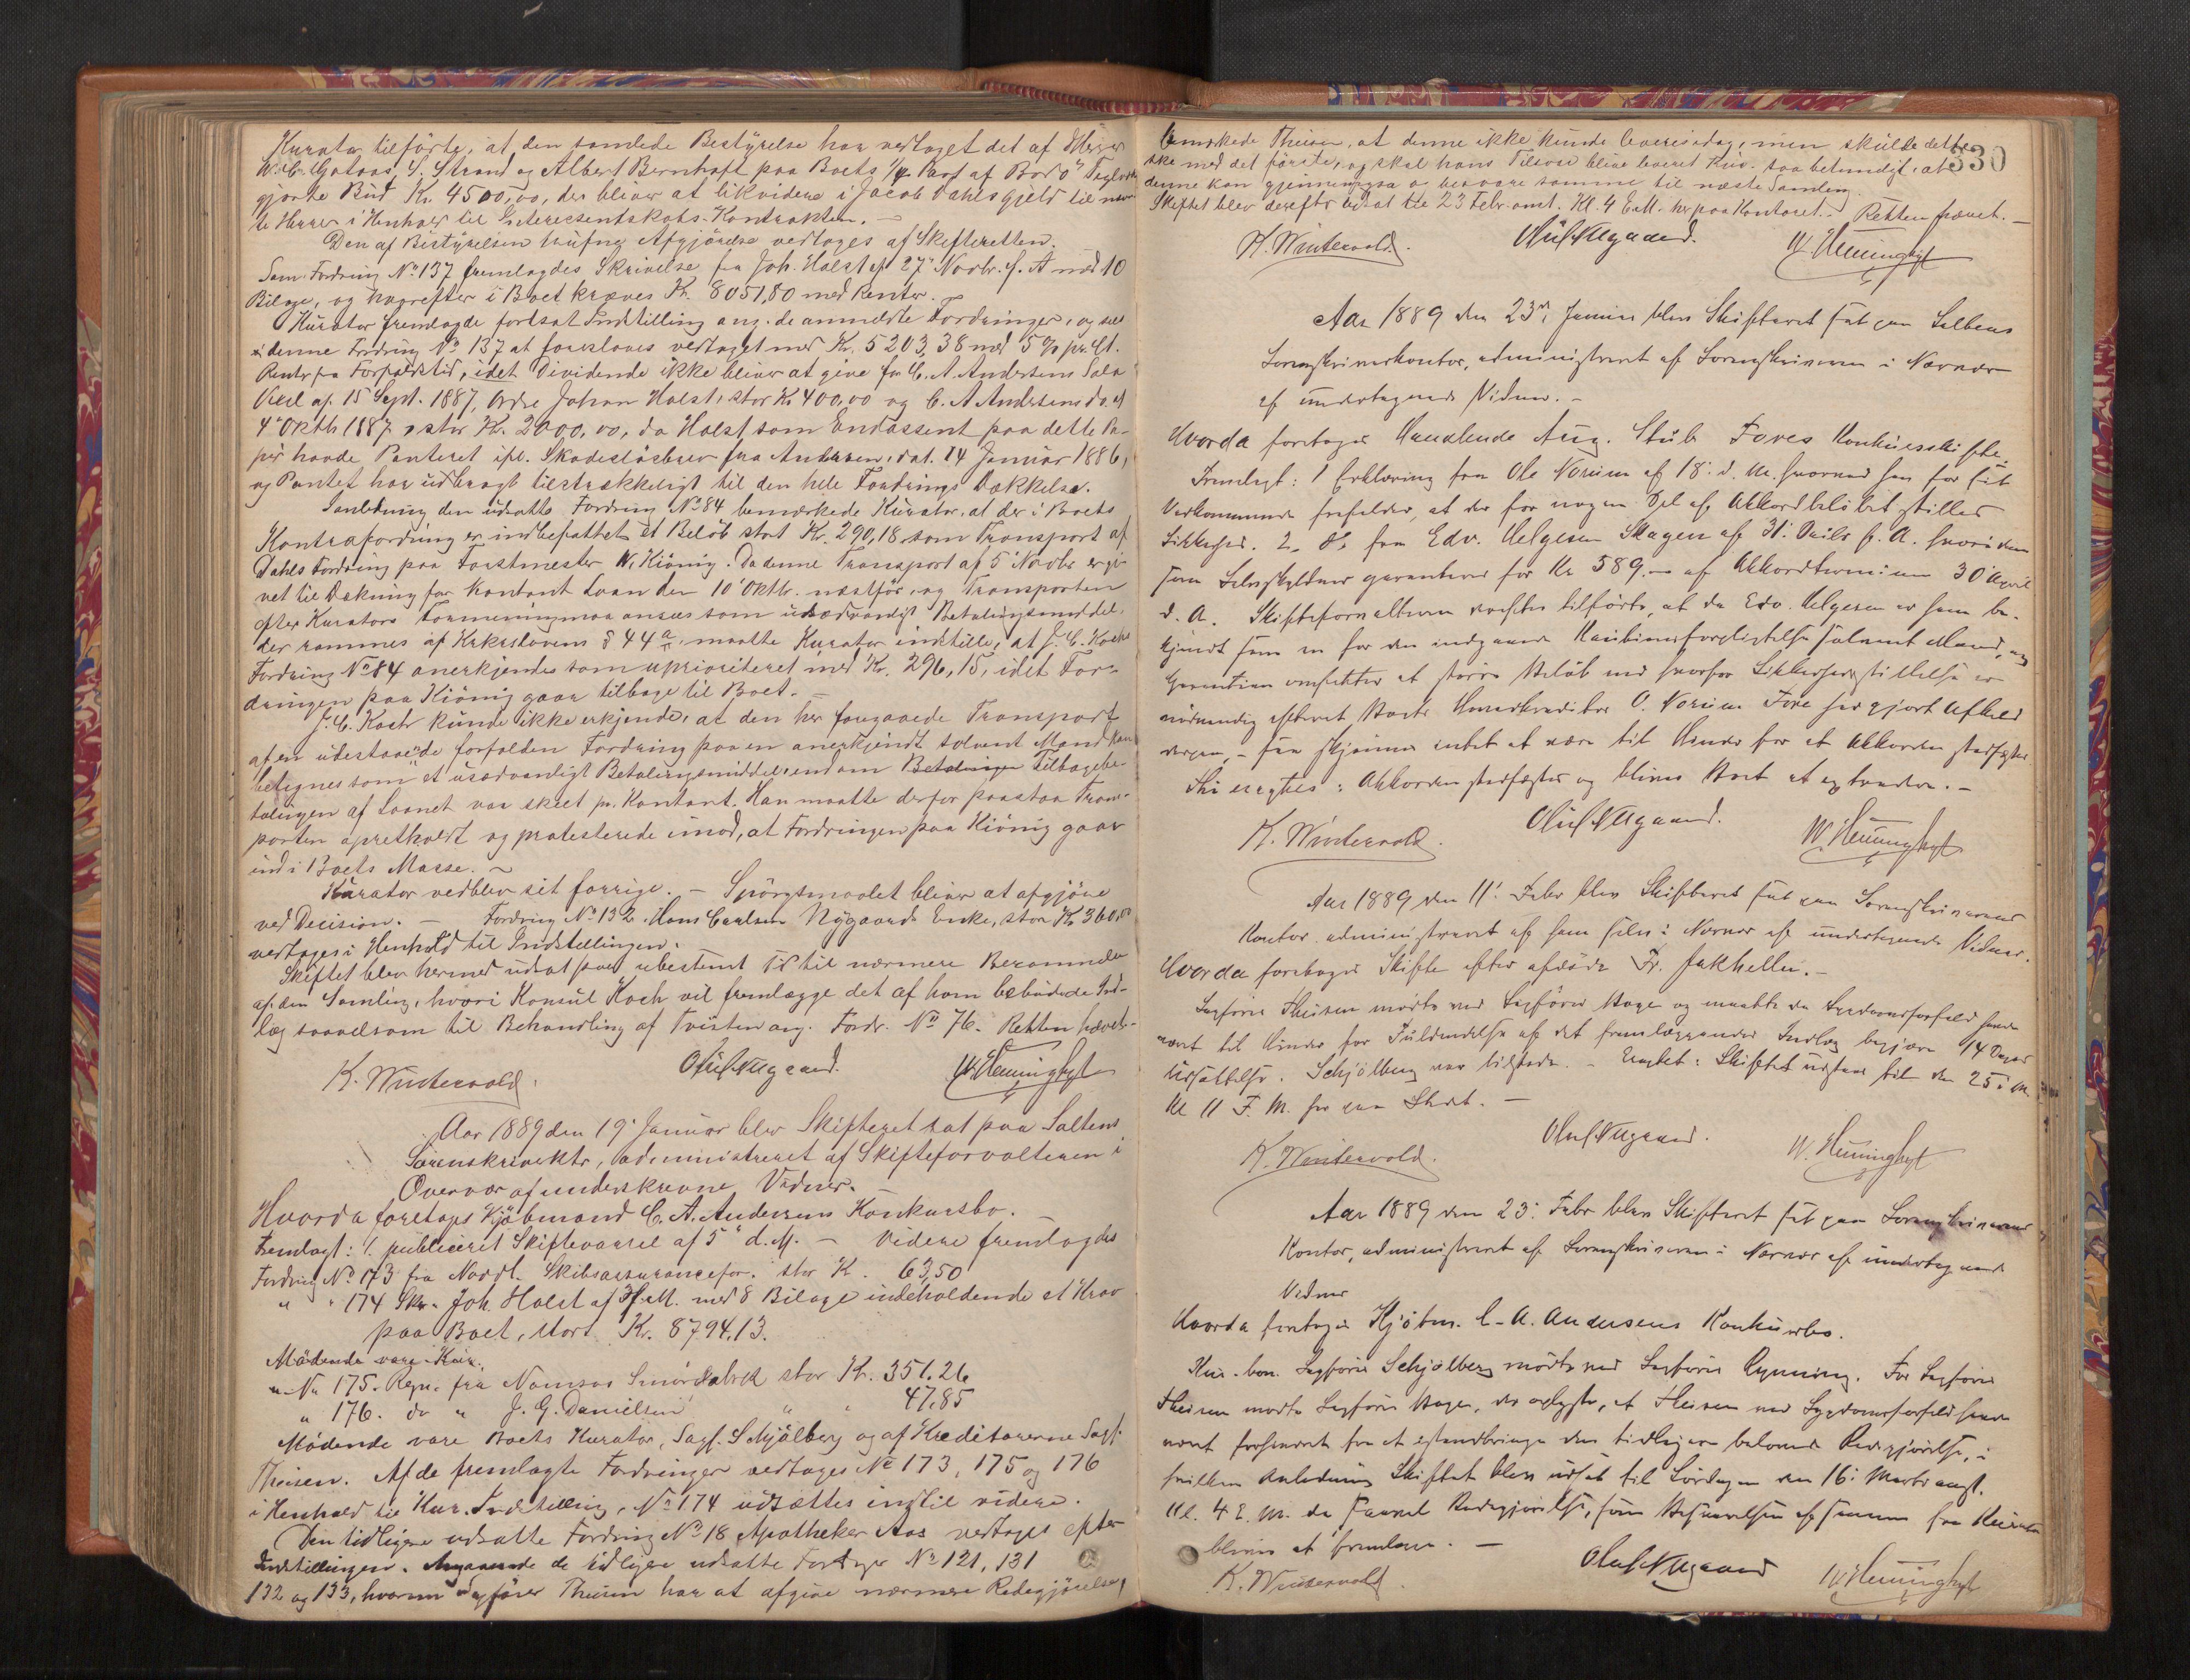 Kurator tilførte, at den samlede Bestyrelse har vedtaget det af Herrer
W. C. S. Strand og Albert Bernhoft paa Boets 1/4 Part af Bodø Teglverk
gjorte Bud Kr. 4500,00, der bliver at likvidere i Jacob Dahls gjeld til nævn-
te Herrer i Henhold til Interessentskabs-Kontrakten. —
Den af Bestyrelsen trufne Afgjørelse vedtages af Skifteretten.
Som Fordring No 137 fremlagdes Skrivelse fra Joh. Holst af 27 Novbr. f. A. med 10
Bilage, og hvorefter i Boet kræves Kr. 8051,80 med Renter.
Kurator fremlagde fortsat Indstilling ang. de anmeldte Fordringer, og
denne Fordring No 137 at foreslaaes vedtaget med Kr. 5203,38 med 5 % pr. Ct.
Rente fra Forfaldstid, idet Dividende ikke bliver at give for C. A. Andersens Sola
Vexel af 15 Sept. 1887, Ordre Johan Holst, stor Kr 400,00 og C. A. Andersens do. af
4 Oktb 1887, stor Kr. 2000,00, da Holst som Endossent paa dette Pa-
pir havde Panteret ifl. Skadesløsbrev fra Andersen, dat. 14 Januar 1886,
og Pantet har udbragt tilstrækkeligt til den hele Fordrings Dækkelse.
I Anledning den udsatte Fordring No 84 bemærkede Kurator, at der i Boets
Kontrafordring er indbefattet et Beløb stort Kr. 290,18 som Transport af
Dahls Fordring paa Forstmester W. Kiønig. Da denne Transport af 5 Novbr er gi-
vet til Dækning for kontant Laan den 10 Oktb. næstfør, og Transporten
efter Kurators Formening maa ansees som usædvanligt Betalingsmiddel,
der rammes af Kskrslovens § 44 a, maatte Kurator indstille, at J. C. Kochs
Fordring No 84 anerkjendes som uprioriteret med Kr. 296,15, idet For-
dringen paa Kiønig gaar tilbage til Boet. —
J. C. Koch kunde ikke erkjende, at den her foregaaede Transport
af en udestaaende forfalden Fordring paa en anerkjendt solvent Mand kan
betegnes som et usædvanligt Betalingsmiddel, endom Betalingen Tilbagebe-
talingen af Laanet var skeet pr. Kontant. Han maatte derfor paastaa Trans-
porten opretholdt og protesterede imod, at Fordringen paa Kiönig gaar
ind i Boets Masse. ~
Kurator vedblev sit forrige. — Spørgsmaalet bliver at afgjøre
ved Decision. — Fordring No 132 Hans Carlsen Nygaards Enke, stor Kr 360,00
vedtages i Henhold til Indstillingen.
Skiftet blev hermed udsat paa ubestemt Tid til nærmere Berammelse
af den Samling, hvori Konsul Koch vil fremlægge det af ham bebudede Ind-
læg saavelsom til Behandling af Tvisten ang. Fordr. No 76. Retten hævet.
K. Wintervold. Oluf Aagaard. W. Henninghjt
Aar 1889 den 19 Januar blev Skifteret sat paa Saltens
Sorenskriverktr, administreret af Skifteforvalteren i
Overvær af underskrevne Vidner.
Hvorda foretages Kjøbmand C. A. Andersens Konkursbo. —
Fremlagt: 1. publiceret Skiftevarsel af 5 d. M. — Videre fremlagdes
Fordring No 173 fra Nordl. Skibsassurancefor. stor Kr. 63,50
" " 174 Skr. Joh. Holst med 8 Bilage indeholdende et Krav
paa Boet, stort Kr. 8794,13.
Mødende vare Kur.
" No 175. Regn. fra Namsos Smørfabrik stor Kr. 351.26
" 176. do " J. G. Danielsen " " 47,85
Mødende vare Boets Kurator, Sagf. Schjølberg og af Kreditorerne Sagf.
Theisen. Af de fremlagte Fordringer vedtages No 173, 175 og 176
i Henhold til Kur. Indstilling, No 174 udsættes indtil videre.
Den tidligere udsatte Fordring No 18 Apotheker Aas vedtages efter
Indstillingen. Angaaende de tidligere udsatte Fordringer No 121, 131
132 og 133, hvorom Sagfører Theisen har at afgive nærmere Redegjørelse,
bemærkede Theisen, at denne ikke kunde leveres idag, men skulde dette
ske med det første, og skal hans Tilsvar blive leveret Kur. saa betimeligt, at
330
denne kan gjennemgaa og besvare samme til næste Samling.
Skiftet blev derefter udsat til 23 Febr. amt. Kl. 4 E.M. her paa Kontoret. — Retten hævet. —
K. Wintervold. Oluf Aagaard. W. Henninghjt
Aar 1889 den 23de Januar blev Skifteret sat paa Saltens
Sorenskriverkontor, administreret af Sorenskriveren i Nærvær
af undertegnede Vidner. —
Hvorda foretages Handlende Aug. Stub Fores Konkursskifte.
Fremlagt: 1 Erklæring fra Ole Norum af 18 d. M. hvorved han for sit
Vedkommende frafalder, at der for nogen Del af Akkordbeløbet stilles
Sikkerhed. 2. do fra Edv. Helgesen Skagen af 31 f. A. hvori den
som Selvskyldner garanterer for Kr 589. — af Akkordterminen 30 April
d. A. Skifteforvalteren derefter tilførte, at da Edv. Helgesen er ham be-
kjendt som en for den indgaaede Kautionsforpligtelse solvent Mand, og
Garantien omfatter et større Beløb end hvorfor Sikkerhedsstillelse er
nødvendig efterat Boets Hovedkreditor O. Norum Fore har gjort Afkald
derpaa, — han skjønner intet at være til Hinder for at Akkorden stadfæstes
Thi eragtes: Akkorden stadfæstes og bliver Boet at extradere. —
K. Wintervold. Oluf Aagaard. W. Henninghjt
Aar 1889 den 11 Febr blev Skifteret sat paa Sorenskriverens
Kontor administreret af ham selv i Nærvær af undertegnede Vidner.
Hvorda foretages Skifte efter afdøde Fr. Jakhelln. —
Sagfører Theisen mødte ved Sagfører Hagen og maatte da Sygdomsforfald havde
været til Hinder for Fuldendelse af det fremlæggendes Indlæg begjære 14 Dages
Udsættelse. Schjølberg var tilstede. — Eragtet: Skiftet udstaar til den 25 d. M.
Kl 11 F. M. her paa Stedet. —
K. Wintervold. Oluf Aagaard. W. Henninghjt
Aar 1889 den 23 Febr blev Skifteret sat paa Sorenskriverens
Kontor, administreret af Sorenskriveren i Nærvær af undertegnede
Vidner
Hvorda foretages Kjøbm. C. A. Andersens Konkursbo.
Kur. bon. Sagfører Schjølberg mødte ved Sagfører Rynning. For Sagfører
Theisen mødte Sagfører Hagen, der oplyste, at Theisen ved Sygdomsforfald havde
været forhindret fra at istandbringe den tidligere belovede Redegjørelse, i
hvilken Anledning Skiftet blev udsat til Lørdagen den 16 Marts amst.
Kl. 4 E. M. da saavel Redegjørelse, som Besvarelsen af samme fra Kurator
bliver at fremlægge. —
K. Wintervold. Oluf Aagaard W. Henninghjt